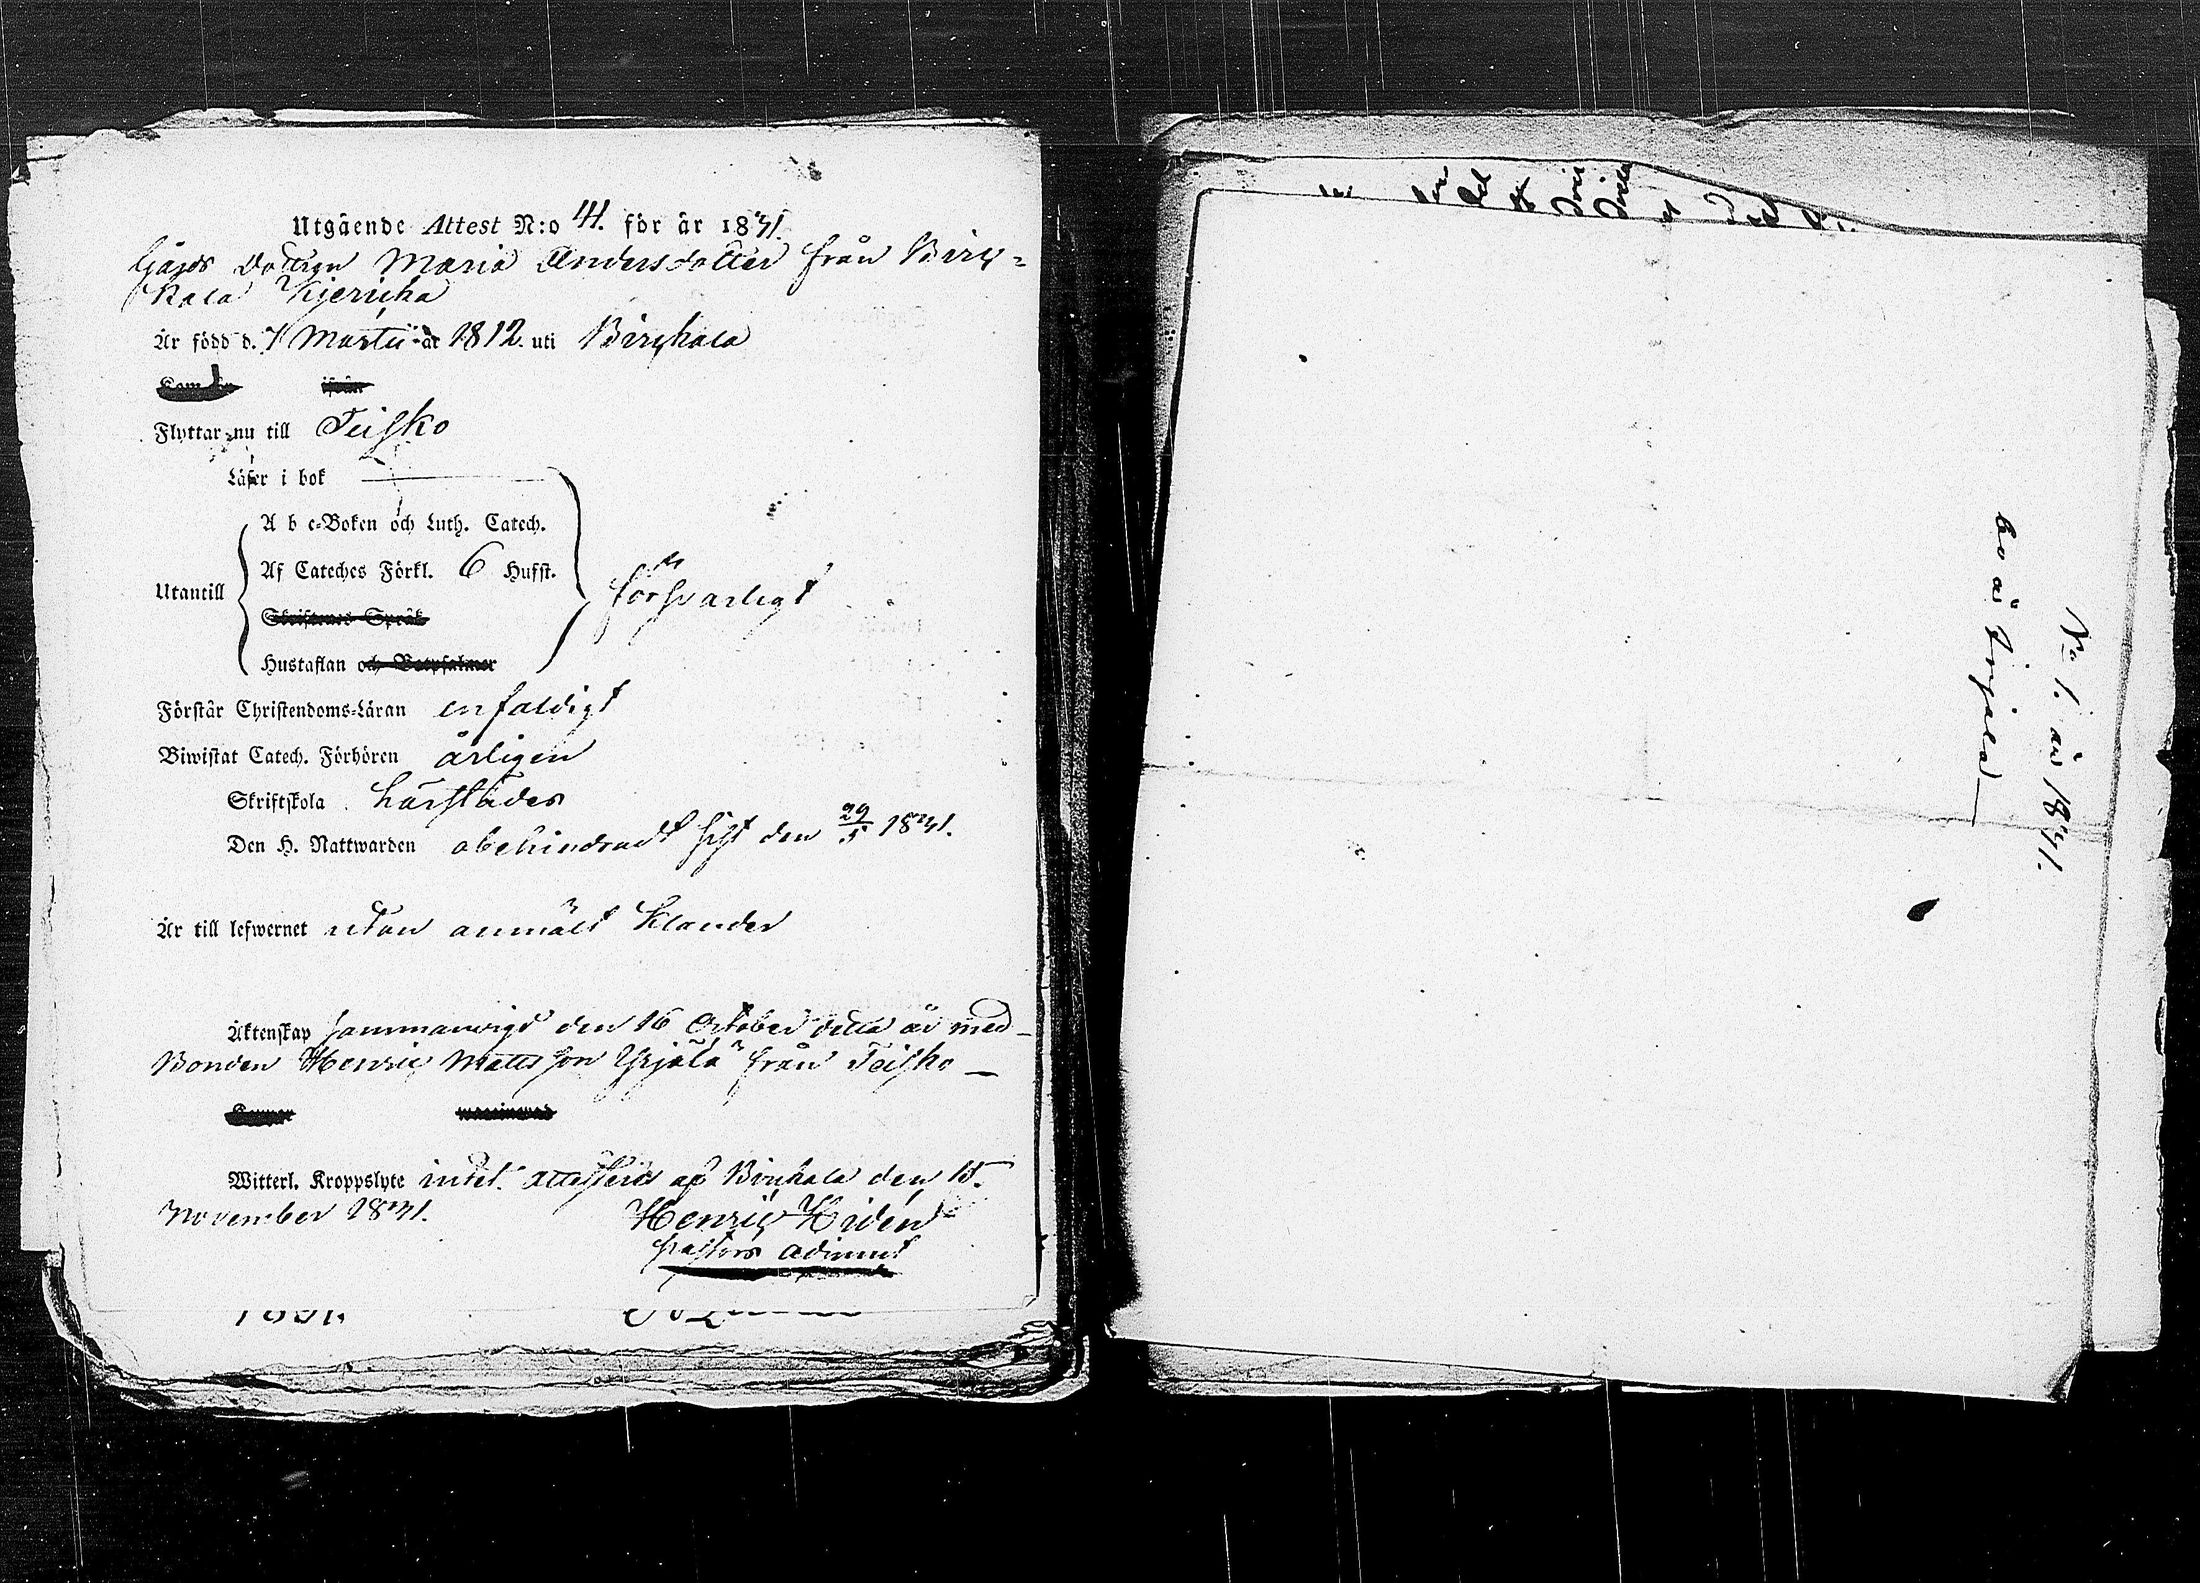 Utgående Attest N:o 41. för år 1831.
Gårds Dottren Maria Andersdotter från Birc=
kala Kjericka
Är född d. 7 Martii år 1812. uti Birckala
Kom
ifrån
Flyttar nu till Teisko
Läser i bok
A b c-Boken och Luth. Catech.
Af Cateches Förkl. 6 Hufst.
Utantill
försvarligt
Skriftenes Språk
Hustaflan och Botpsalmer
Förstår Christendoms-Läran enfaldigt
Biwistat Catech. Förhören årligen
Skriftskola härstädes
Den H. Nattwarden obehindradt sist den 29/5 1831.
Är till lefwernet utan anmält Klander
Äktenskap sammanvigd den 16 October detta år med
Bonden Henric Mattsson Yrjälä från Teisko
Koppor
waccinerad
Witterl. Kroppslyte intet. Attesterar af Birckala den 15.
November 1831.
Henric Hidén
Pastors Adjunct
1831.
No 1. år 1831.